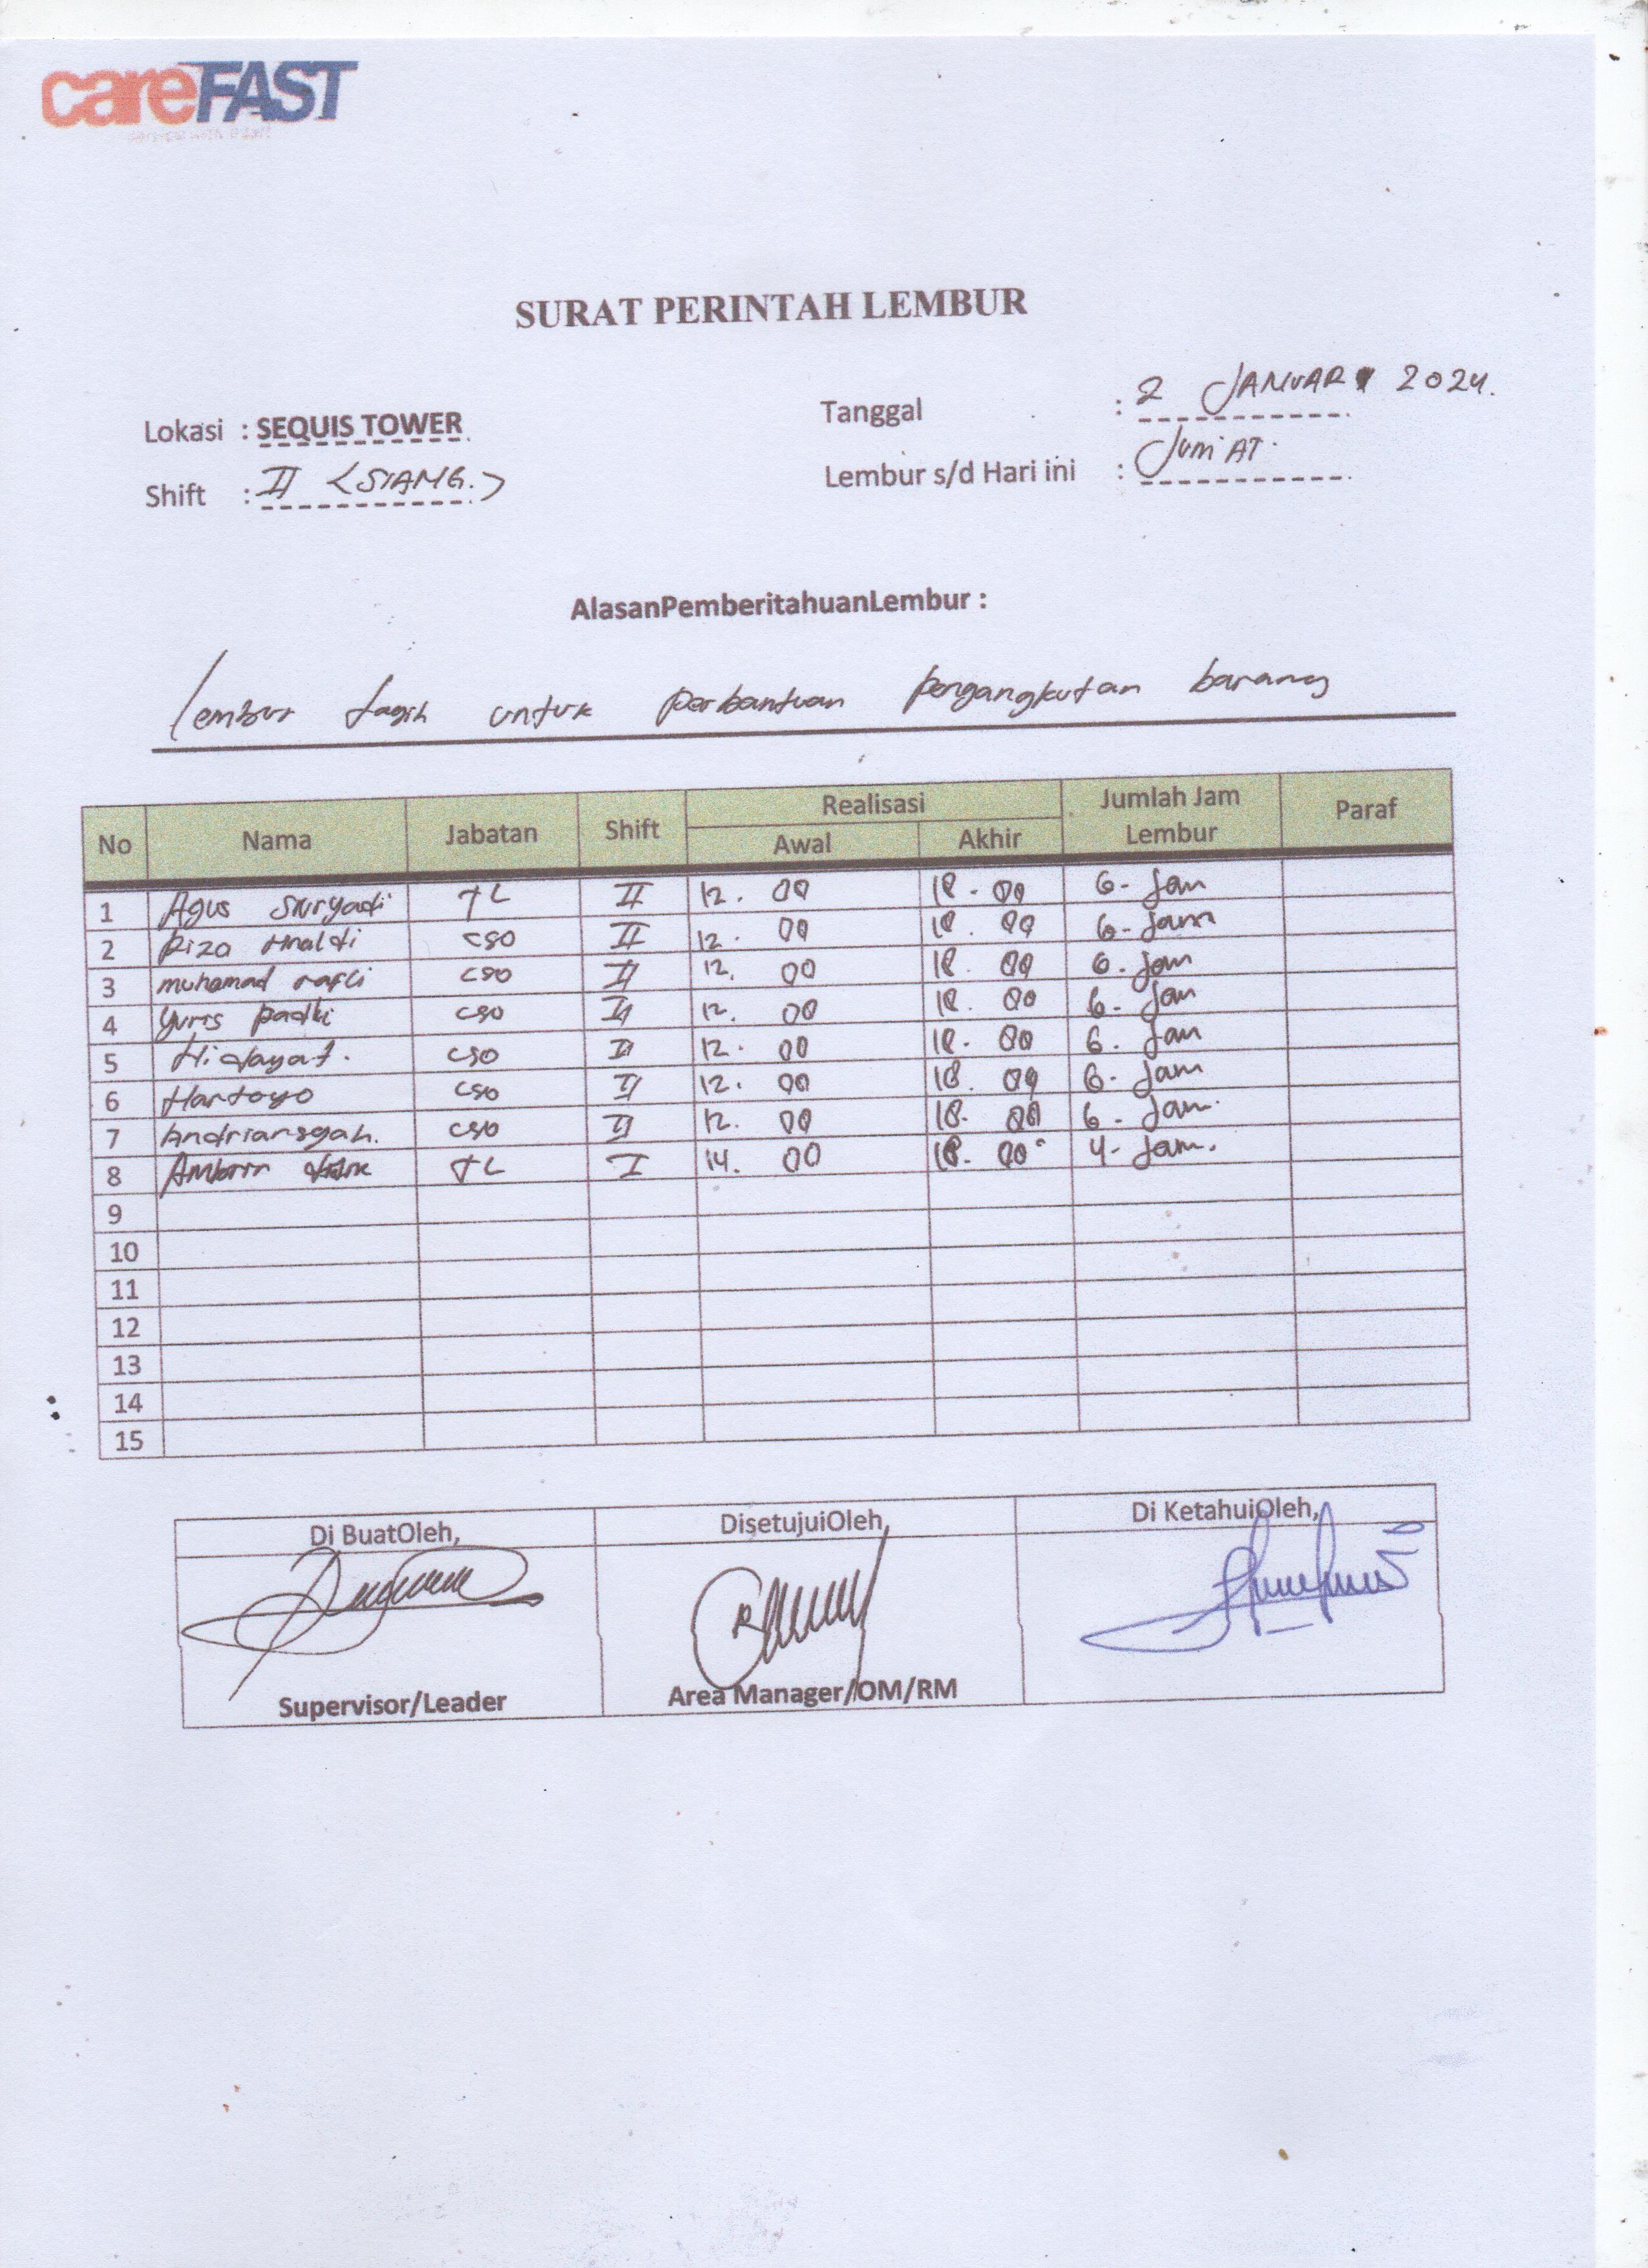 careFAST
SURAT PERINTAH LEMBUR
Lokasi : SEQUIS TOWER
Tanggal : 2 JANUARI 2024.
Shift : II <SIANG.>
Lembur s/d Hari ini : Jum'AT.
AlasanPemberitahuanLembur :
lembur tagih untuk perbantuan pengangkutan barang
No Nama Jabatan Shift Realisasi Jumlah Jam Lembur Paraf
Awal Akhir
1 Agus Suryadi TL II 12. 00 18. 00 6. Jam
2 Riza CSO II 12. 00 18. 00 6. Jam
3 muhamad rafli CSO II 12. 00 18. 00 6. Jam
4 CSO II 12. 00 18. 00 6. Jam
5 Hidayat. CSO II 12. 00 18. 00 6. Jam
6 Hartoyo CSO II 12. 00 18. 00 6. Jam
7 Andriansyah. CSO II 12. 00 18. 00 6. Jam.
8 TL I 14. 00 18. 00 4. Jam.
9
10
11
12
13
14
15
Di BuatOleh, DisetujuiOleh, Di KetahuiOleh,
Supervisor/Leader Area Manager/OM/RM